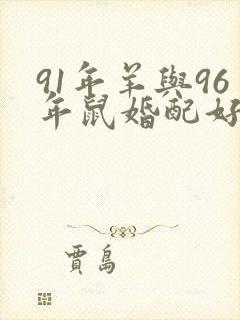 91年羊與96
年鼠婚配好
賈島